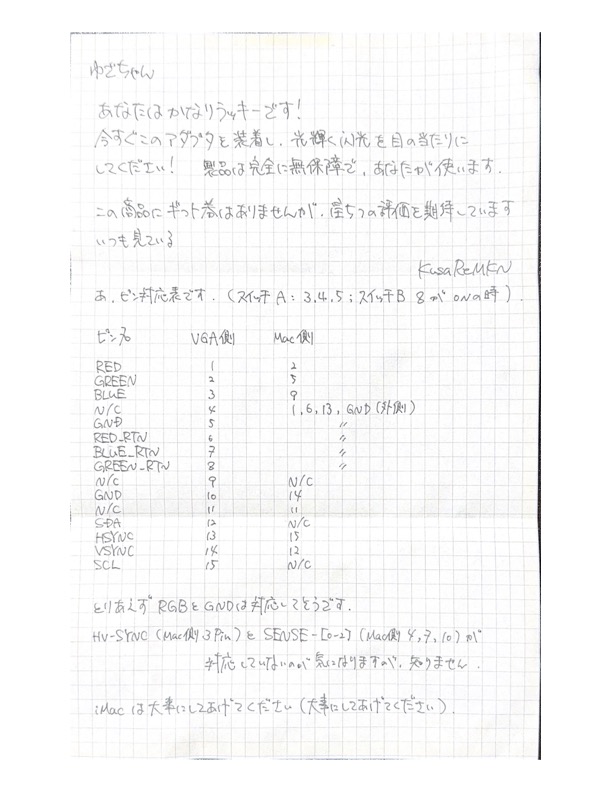 ゆざちゃん
あなたはかなりラッキーです!
今すぐこのアダプタを装着し、光輝く閃光を目の当たりに
してください! 製品は完全に無保障で、あなたが使います.
この商品にギフト券はありませんが、星5つの評価を期待しています
いつも見ている
KusaReMKN
あ、ピン対応表です. (スイッチA: 3.4.5; スイッチB 8がONの時).
ピン名 VGA側 Mac側
RED 1 2
GREEN 2 5
BLUE 3 9
N/C 4 1,6,13, GND(外側)
GND 5 〃
RED_RTN 6 〃
BLUE_RTN 7 〃
GREEN_RTN 8 〃
N/C 9 N/C
GND 10 14
N/C 11 11
SDA 12 N/C
HSYNC 13 15
VSYNC 14 12
SCL 15 N/C
とりあえずRGBとGNDは対応してそうです.
HV-SYNC (Mac側3Pin)とSENSE-[0-2] (Mac側4,7,10)が
対応していないのが気になりますが、知りません.
iMacは大事にしてあげてください(大事にしてあげてください).